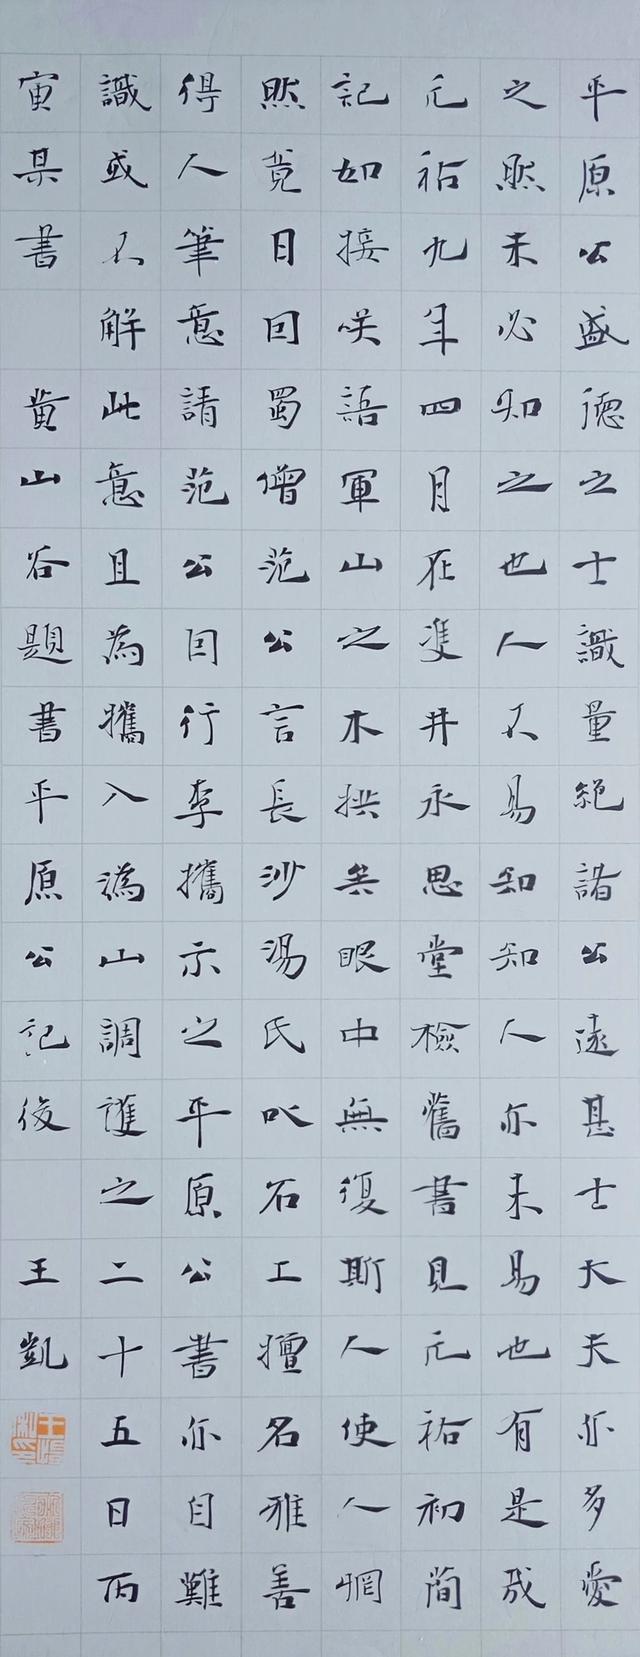 平原公盛德之士識量絕諸公遠甚士大夫亦多愛
之然未必知之也人不易知知人亦未易也有是哉
元祐九年四月在雙井永思堂檢舊書見元祐初簡
記如接咲語軍山之木拱矣眼中無復斯人使人惘
然竟日回蜀僧范公言長沙湯氏以石工擅名雅善
得人筆意請范公回行李攜示之平原公書亦自難
識或不解此意且為攜入溈山調護之二十五日丙
寅某書 黄山谷題書平原公記後 王凱